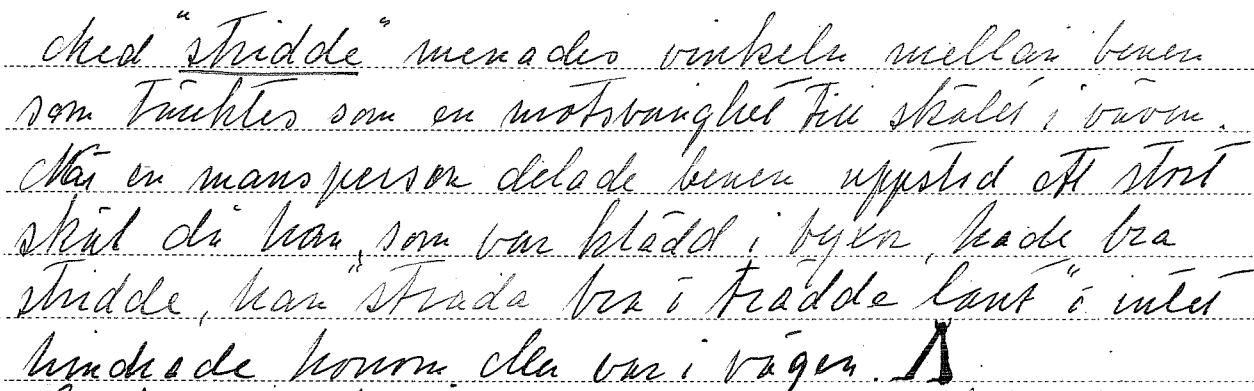 Med "stridde" menades vinkeln mellan benen
som tänktes som en motsvarighet till skälet i väven.
När en mansperson delade benen uppstod ett stort
skäl då han, som var klädd i byxor, hade bra
stridde, han "strada bra å trädde lant" å intet
hindrade honom eller var i vägen.